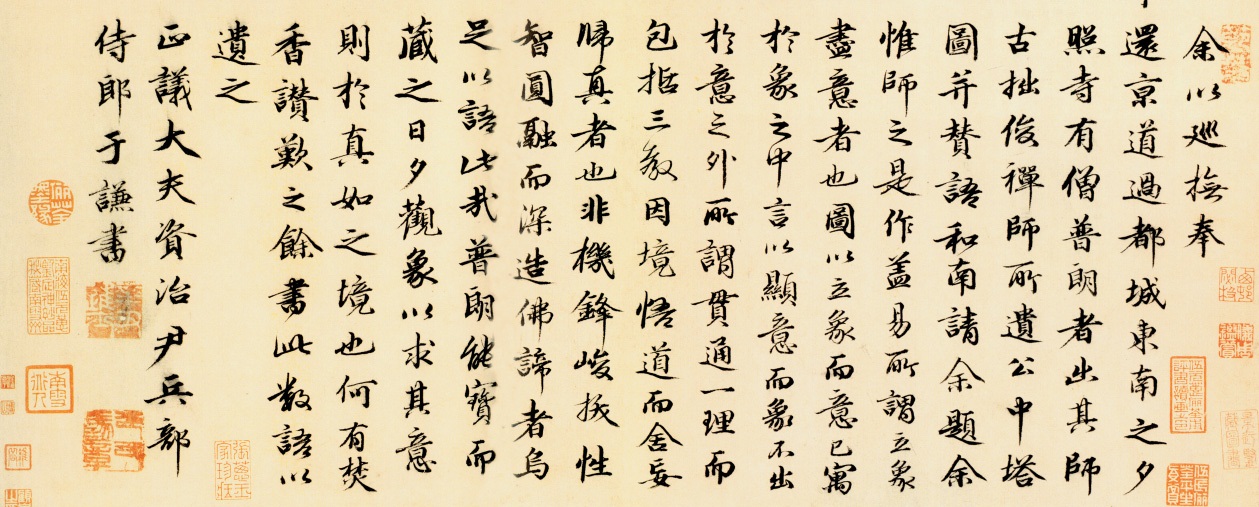 余以巡撫奉
還京道過都城東南之夕
照寺有僧普朗者出其師
古拙俊禪師所遺公中塔
圖并贊語和南請余題余
惟師之是作盖易所謂立象
盡意者也圖以立象而意已寓
於象之中言以顯意而象不出
於意之外所謂貫通一理而
包括三教因境悟道而舍妄
歸真者也非機鋒峻拔性
智圓融而深造佛諦者烏
足以語此哉普朗能寶而
藏之日夕觀象以求其意
則於真如之境也何有焚
香讚歎之餘書此數語以
遺之
正議大夫資治尹兵部
侍郎于謙書